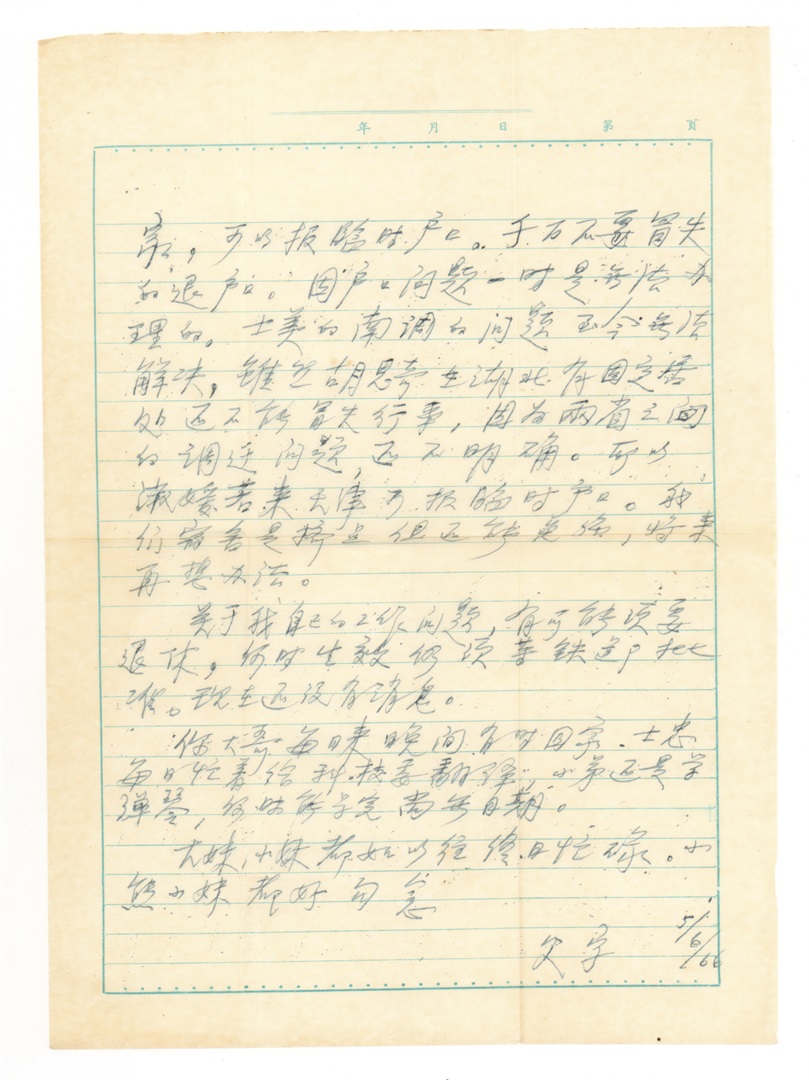 年 月 日 第 頁
家，可以报临时户口。千万不要冒失
的退户口。因户口问题一时是无法办
理的。士美的南调的问题至今无法
解决，虽然胡思奇在湖北有固定居
处还不能冒失行事，因为兩省之间
的调迁问题，还不明确。所以
淑媛若来天津可报临时户口。我
们宿舍是挤点但还能，将来
再想办法。
关于我自己的工作问题，有可能须要
退休，何时生效仍须等铁道部批
准。现在还没有消息。
你大哥每日来晚间有时回家。士忠
每日忙着给科.校委翻译，小弟还是学
弹琴，何时能学完尚无日期。
大妹，小妹都如以往终日忙碌。小
熊小妹都好勿念
父字 5/6/66